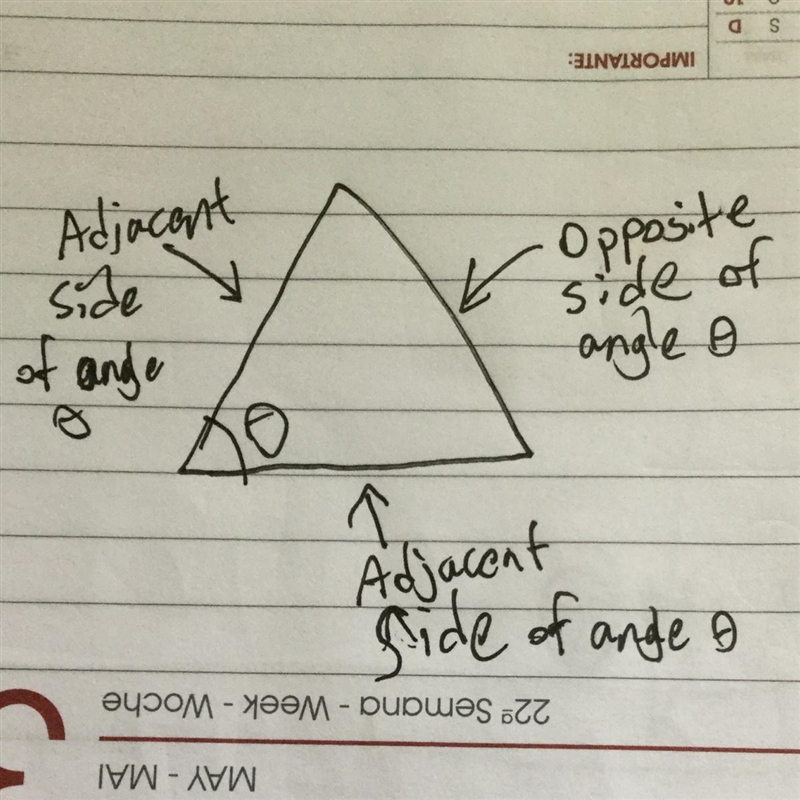 S D
IMPORTANTE:
Adjacent
side
of angle
θ
Opposite
side of
angle θ
θ
Adjacent
side of angle θ
22ª Semana - Week - Woche
MAY - MAI